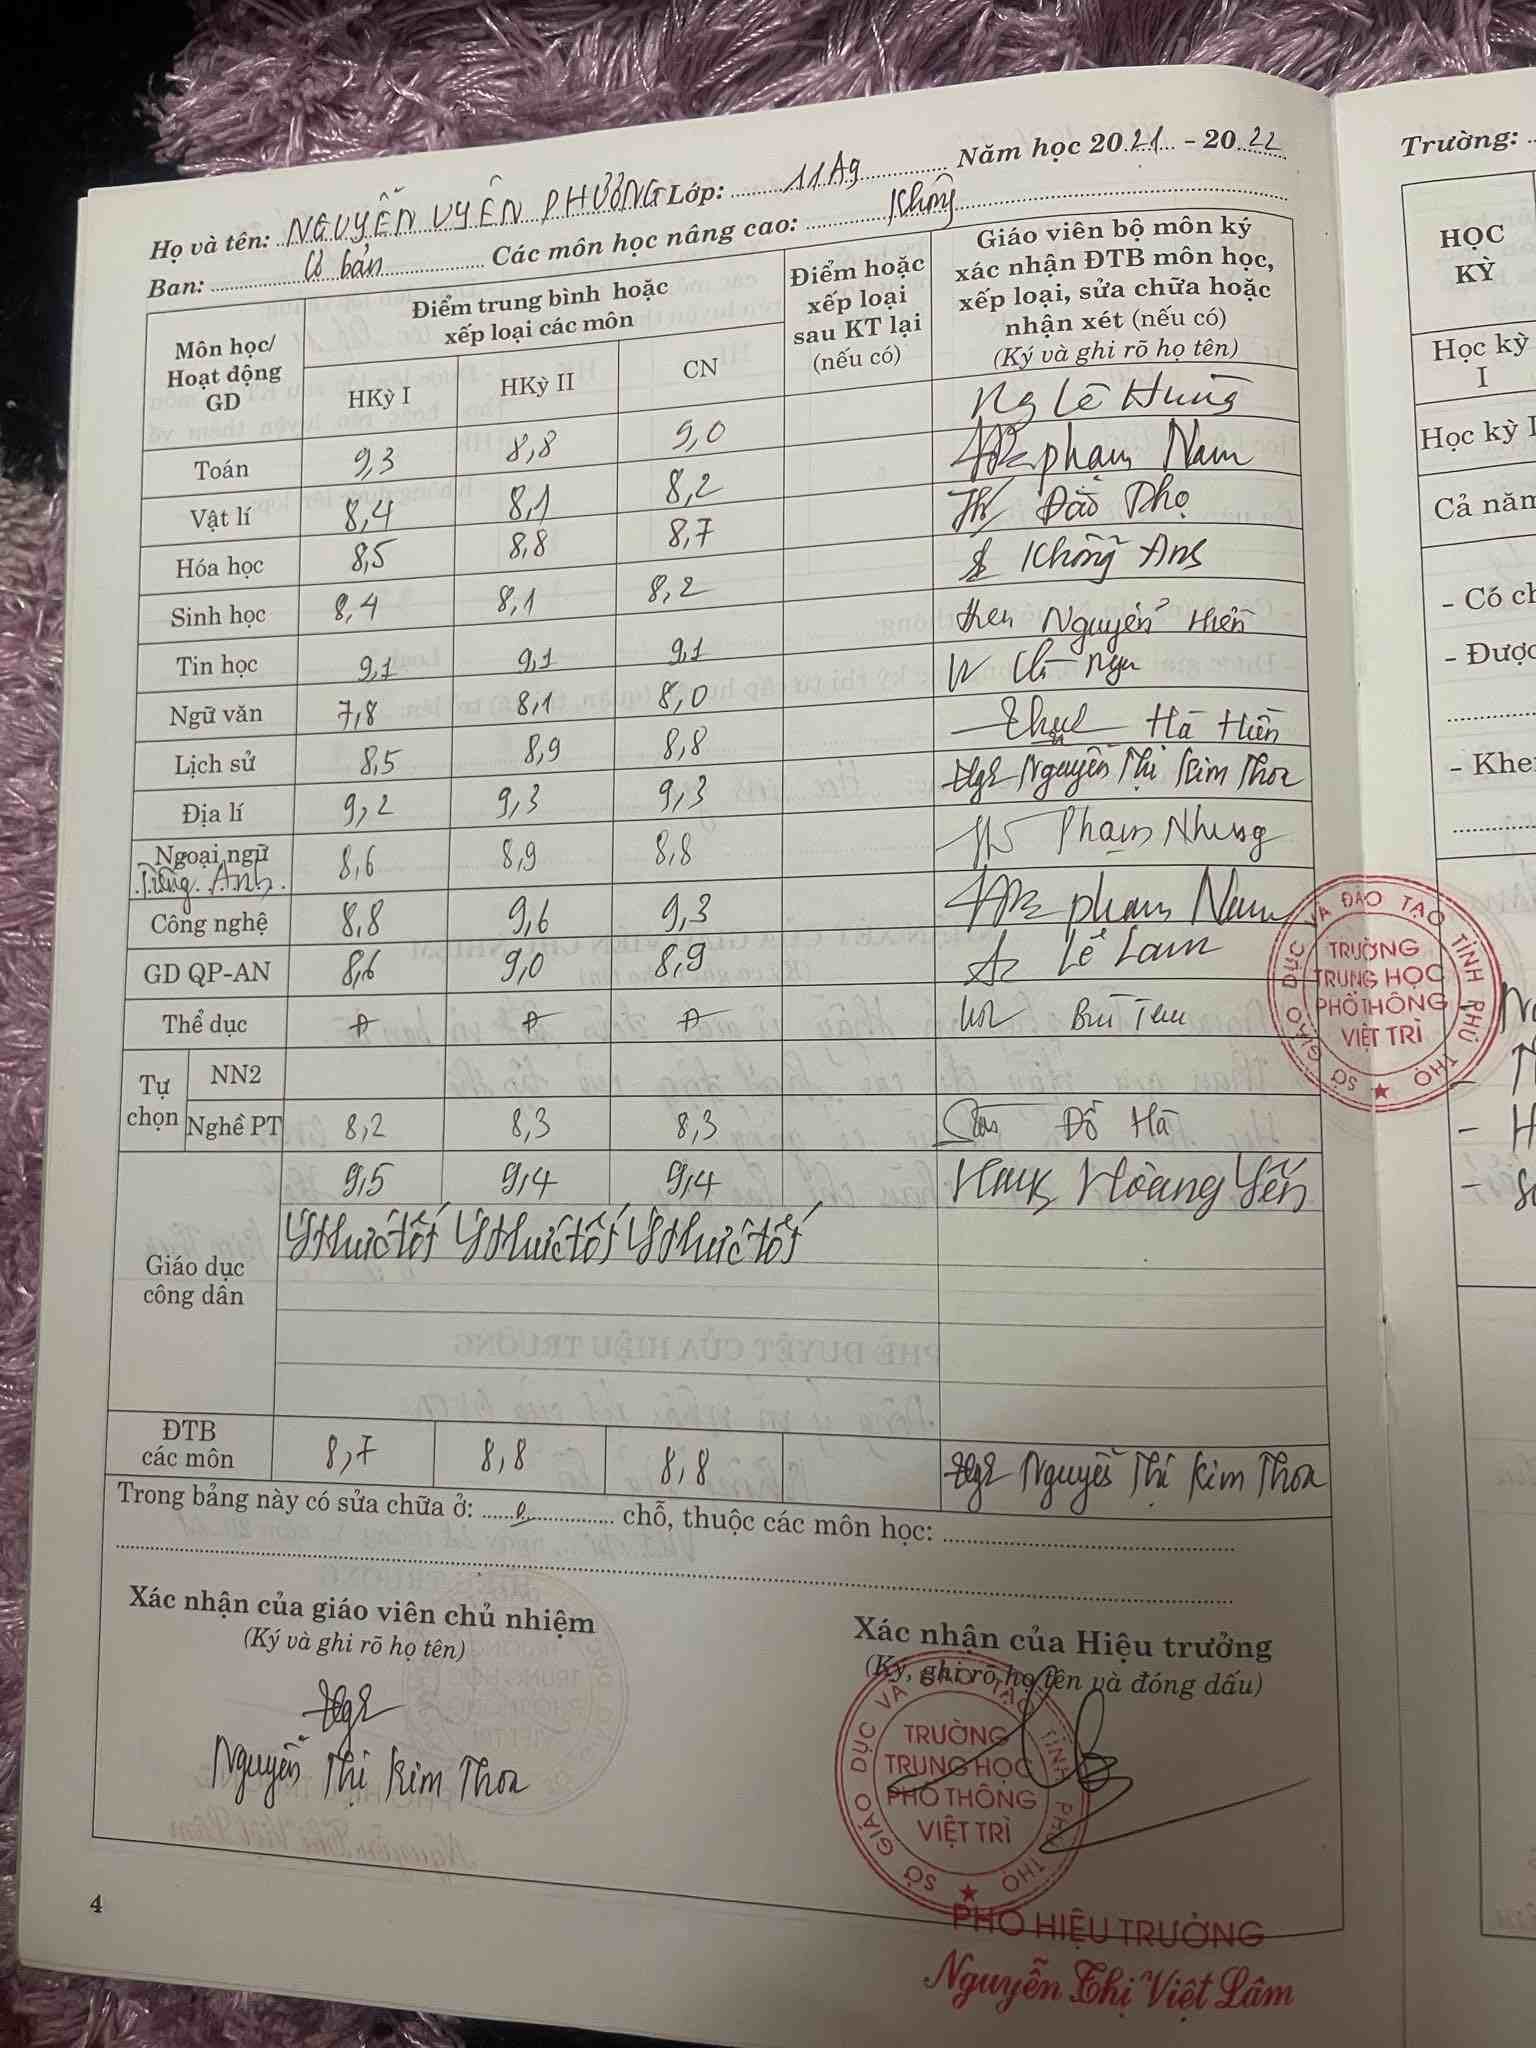 Họ và tên: NGUYỄN UYÊN PHƯƠNG Lớp: 11A9 Năm học 2021 - 2022
Ban: Cơ bản Các môn học nâng cao: Không
Môn học/ Hoạt động GD
Điểm trung bình hoặc xếp loại các môn
HKỳ I HKỳ II CN
Điểm hoặc xếp loại sau KT lại (nếu có)
Giáo viên bộ môn ký xác nhận ĐTB môn học, xếp loại, sửa chữa hoặc nhận xét (nếu có) (Ký và ghi rõ họ tên)
Toán 9,3 8,8 9,0 Ng Lê Hùng
Vật lí 8,4 8,1 8,2 Phạm Nam
Hóa học 8,5 8,8 8,7 Đào Thọ
Sinh học 8,4 8,1 8,2 Khổng Anh
Tin học 9,1 9,1 9,1 Nguyễn Hiền
Ngữ văn 7,8 8,1 8,0
Lịch sử 8,5 8,9 8,8 Hà Hiền
Địa lí 9,2 9,3 9,3 Nguyễn Thị Kim Thoa
Ngoại ngữ Tiếng Anh 8,6 8,9 8,8 Phạm Nhung
Công nghệ 8,8 9,6 9,3 Phạm Nam
GD QP-AN 8,6 9,0 8,9 Lê Lam
Thể dục Đ Đ Đ Bùi
Tự chọn
NN2
Nghề PT 8,2 8,3 8,3 Đỗ Hà
Giáo dục công dân
9,5 9,4 9,4 Hoàng Yến
Ý thức tốt Ý thức tốt Ý thức tốt
ĐTB các môn 8,7 8,8 8,8 Nguyễn Thị Kim Thoa
Trong bảng này có sửa chữa ở: chỗ, thuộc các môn học:
Xác nhận của giáo viên chủ nhiệm
(Ký và ghi rõ họ tên)
Nguyễn Thị Kim Thoa
Xác nhận của Hiệu trưởng
(Ký, ghi rõ họ tên và đóng dấu)
SỞ GIÁO DỤC VÀ ĐÀO TẠO TỈNH PHÚ THỌ
TRƯỜNG
TRUNG HỌC
PHỔ THÔNG
VIỆT TRÌ
PHÓ HIỆU TRƯỞNG
Nguyễn Thị Việt Lâm
4
SỞ GIÁO DỤC VÀ ĐÀO TẠO TỈNH PHÚ THỌ
TRƯỜNG
TRUNG HỌC
PHỔ THÔNG
VIỆT TRÌ
Trường:
HỌC
KỲ
Học kỳ
I
Học kỳ I
Cả năm
- Có ch
- Được
- Khe